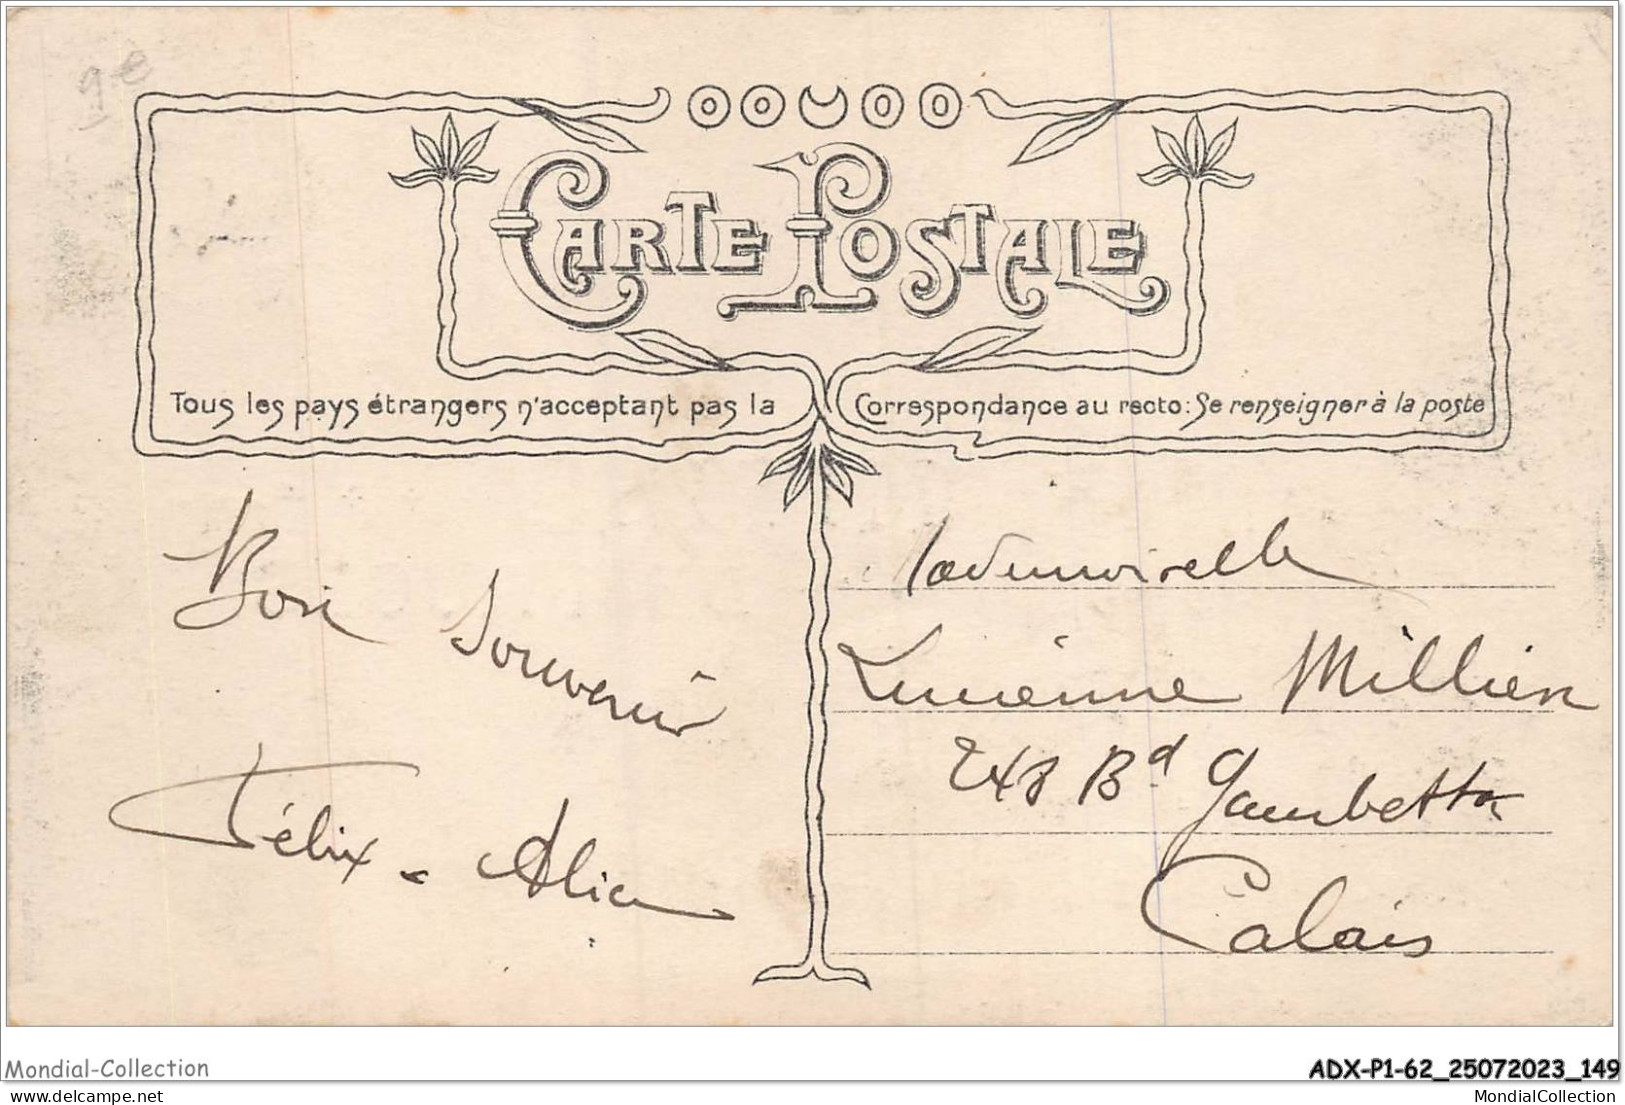 9e
CARTE POSTALE
Tous les pays étrangers n'acceptant pas la Correspondance au recto: Se renseigner à la poste
Bon souvenir
Félix - Alice
Mademoiselle
Lucienne Millien
248 Bd Gambetta
Calais
Mondial-Collection
ADX-P1-62_25072023_149
delcampe.net
MondialCollection